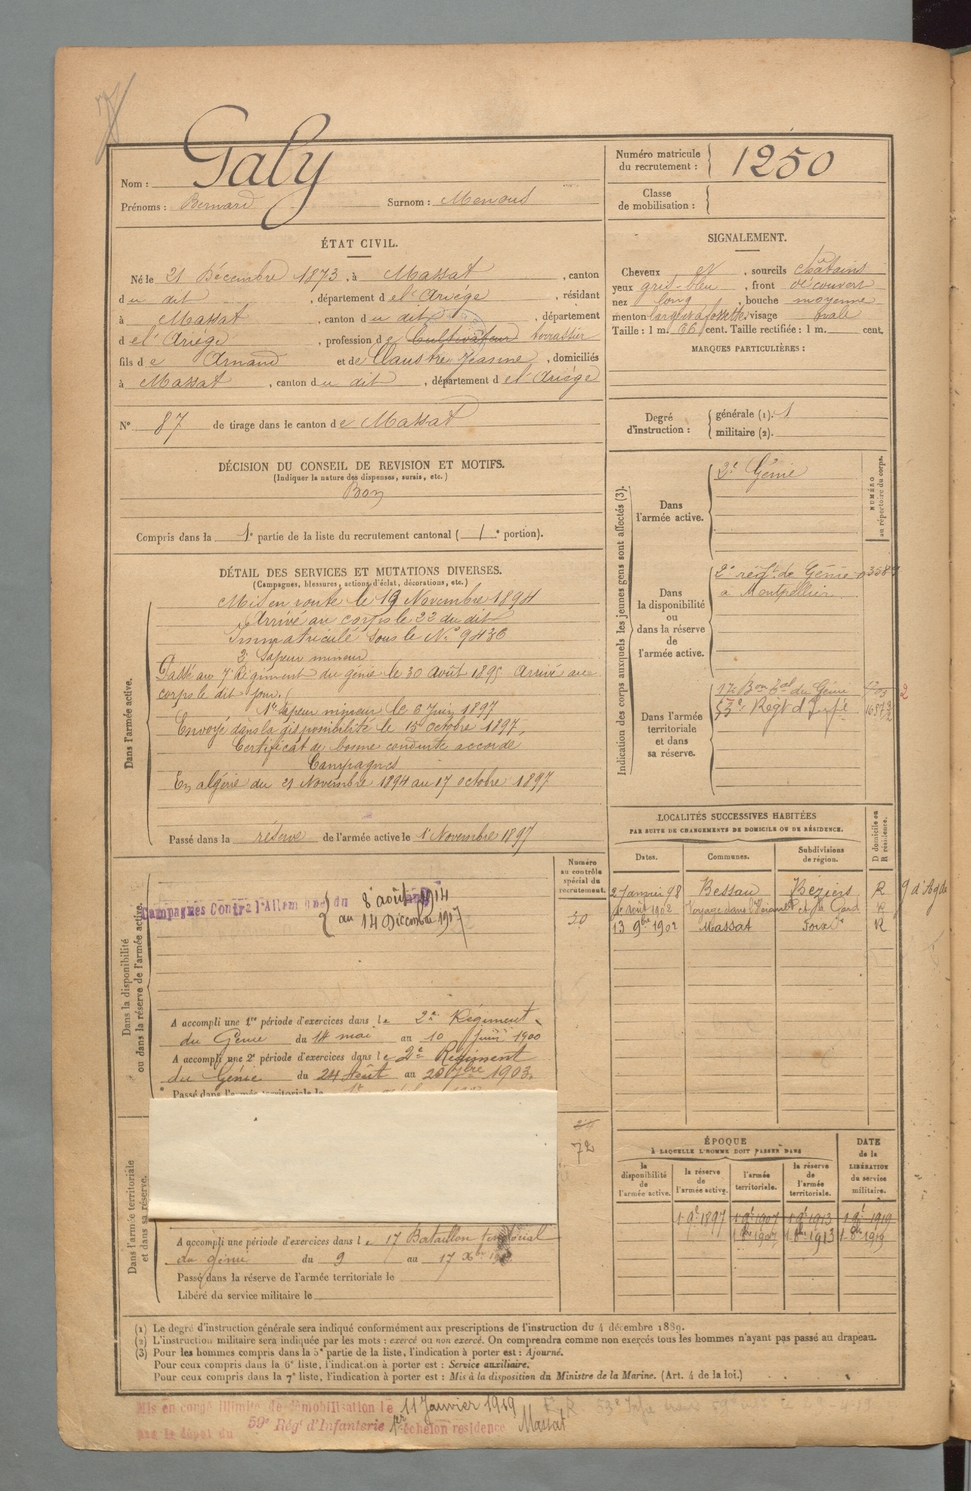 Galy
Nom :
Prénoms : Bernard Surnom : Menous
Numéro matricule du recrutement : 1250
Classe de mobilisation :
ÉTAT CIVIL.
Né le 21 Décembre 1873, à Massat, canton
du dit, département de l'Ariège, résidant
à Massat, canton du dit, département
de l'Ariège, profession de Cultivateur terrassier
fils de Arnaud et de Claustre Jeanne, domiciliés
à Massat, canton du dit, département de l'Ariège
N° 87 de tirage dans le canton de Massat
DÉCISION DU CONSEIL DE REVISION ET MOTIFS.
(Indiquer la nature des dispenses, sursis, etc.)
Bon
Compris dans la 1e partie de la liste du recrutement cantonal (1e portion).
SIGNALEMENT.
Cheveux , sourcils châtains
yeux gris-bleu, front découvert
nez long, bouche moyenne
menton large et à fossette, visage ovale
Taille : 1 m. 66 cent. Taille rectifiée : 1 m. cent.
MARQUES PARTICULIÈRES :
Degré d'instruction : générale (1). 1
militaire (2).
DÉTAIL DES SERVICES ET MUTATIONS DIVERSES.
(Campagnes, blessures, actions d'éclat, décorations, etc.)
Dans l'armée active.
Mis en route le 19 Novembre 1894
Arrivé au corps le 22 du dit
Immatriculé sous le N° 9436
2e Sapeur mineur
Passé au 7e Régiment du génie le 30 août 1895 Arrivé au
corps le dit jour.
1er Sapeur mineur le 6 Juin 1897
Envoyé dans la disponibilité le 15 octobre 1897,
Certificat de bonne conduite accordé
Campagnes
En algérie du 21 Novembre 1894 au 17 octobre 1897
Passé dans la réserve de l'armée active le 1er Novembre 1897
Indication des corps auxquels les jeunes gens sont affectés (3).
NUMÉRO au répertoire du corps.
Dans l'armée active.
2e Génie
Dans la disponibilité ou dans la réserve de l'armée active.
2e régt de Génie
à Montpellier
Dans l'armée territoriale et dans sa réserve.
17e Bon Tal du Génie
53e Régt d'Infie
LOCALITÉS SUCCESSIVES HABITÉES
PAR SUITE DE CHANGEMENTS DE DOMICILE OU DE RÉSIDENCE.
Dates. Communes. Subdivisions de région. D domicile ou R résidence.
27 Janvier 98 Bessan Béziers R
9 d'Agde
août 1902 Voyage dans l'Hérault et le Gard R
13 9bre 1902 Massat Foix R
Numéro au contrôle spécial du recrutement.
Dans la disponibilité ou dans la réserve de l'armée active.
Campagnes Contre l'Allemagne du 8 août 1914
au 14 Décembre 1917
A accompli une 1re période d'exercices dans le 2e Régiment
du Génie du 14 mai au 10 Juin 1900
A accompli une 2e période d'exercices dans le 2e Régiment
du Génie du 24 Août au 20 7bre 1903.
Passé dans l'armée territoriale le
72
Dans l'armée territoriale et dans sa réserve.
A accompli une période d'exercices dans le 17 Bataillon territorial
du génie du 9 au 17 Xbre
Passé dans la réserve de l'armée territoriale le
Libéré du service militaire le
ÉPOQUE
À LAQUELLE L'HOMME DOIT PASSER DANS
la disponibilité de l'armée active. la réserve de l'armée active. l'armée territoriale. la réserve de l'armée territoriale. DATE de la LIBÉRATION du service militaire.
1 9bre 1897 1 9bre 1907 1 9bre 1913 1 9bre 1919
1 8bre 1907 1 8bre 1913 1 8bre 1919
(1) Le degré d'instruction générale sera indiqué conformément aux prescriptions de l'instruction du 4 décembre 1889.
(2) L'instruction militaire sera indiquée par les mots : exercé ou non exercé. On comprendra comme non exercés tous les hommes n'ayant pas passé au drapeau.
(3) Pour les hommes compris dans la 5e partie de la liste, l'indication à porter est : Ajourné.
Pour ceux compris dans la 6e liste, l'indication à porter est : Service auxiliaire.
Pour ceux compris dans la 7e liste, l'indication à porter est : Mis à la disposition du Ministre de la Marine. (Art. 4 de la loi.)
Mis en congé illimité de démobilisation le 11 Janvier 1919
par le dépôt du 59e Rég. d'Infanterie 1er échelon résidence Massat